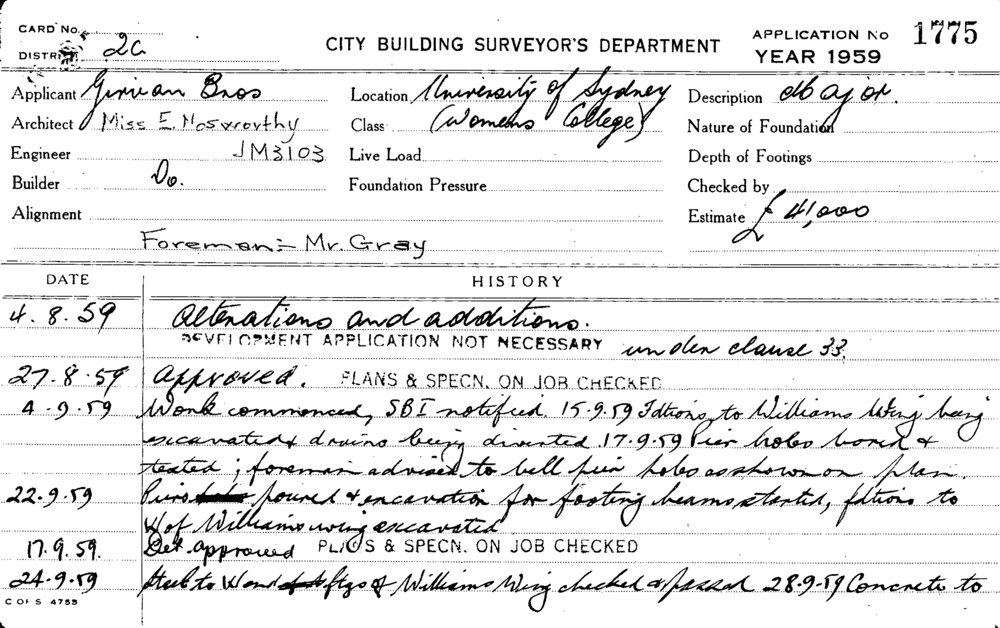 CARD No.
DISTRICT 2a
CITY BUILDING SURVEYOR'S DEPARTMENT
APPLICATION No 1775
YEAR 1959
Applicant Girvan Bros
Location University of Sydney
Description Major.
Architect Miss E. Nosworthy
Class (Womens College)
Nature of Foundation
Engineer JM3103
Live Load
Depth of Footings
Builder Do.
Foundation Pressure
Checked by
Alignment
Estimate £ 41,000
Foreman:- Mr. Gray
DATE HISTORY
4.8.59 Alterations and additions.
DEVELOPMENT APPLICATION NOT NECESSARY under clause 33.
27.8.59 Approved. PLANS & SPECN. ON JOB CHECKED
4.9.59 Work commenced, SBI notified. 15.9.59 Fdtions to Williams Wing being
excavated & drains being diverted 17.9.59 Pier holes bored &
tested; foreman advised to bell pier holes as shown on plan.
22.9.59 Piers poured & excavation for footing beams started, fdtions to
W of Williams wing excavated
17.9.59. Det. approved PLANS & SPECN. ON JOB CHECKED
24.9.59 Steel to W end ftgs of Williams Wing checked & passed 28.9.59 Concrete to
C OF S 4755